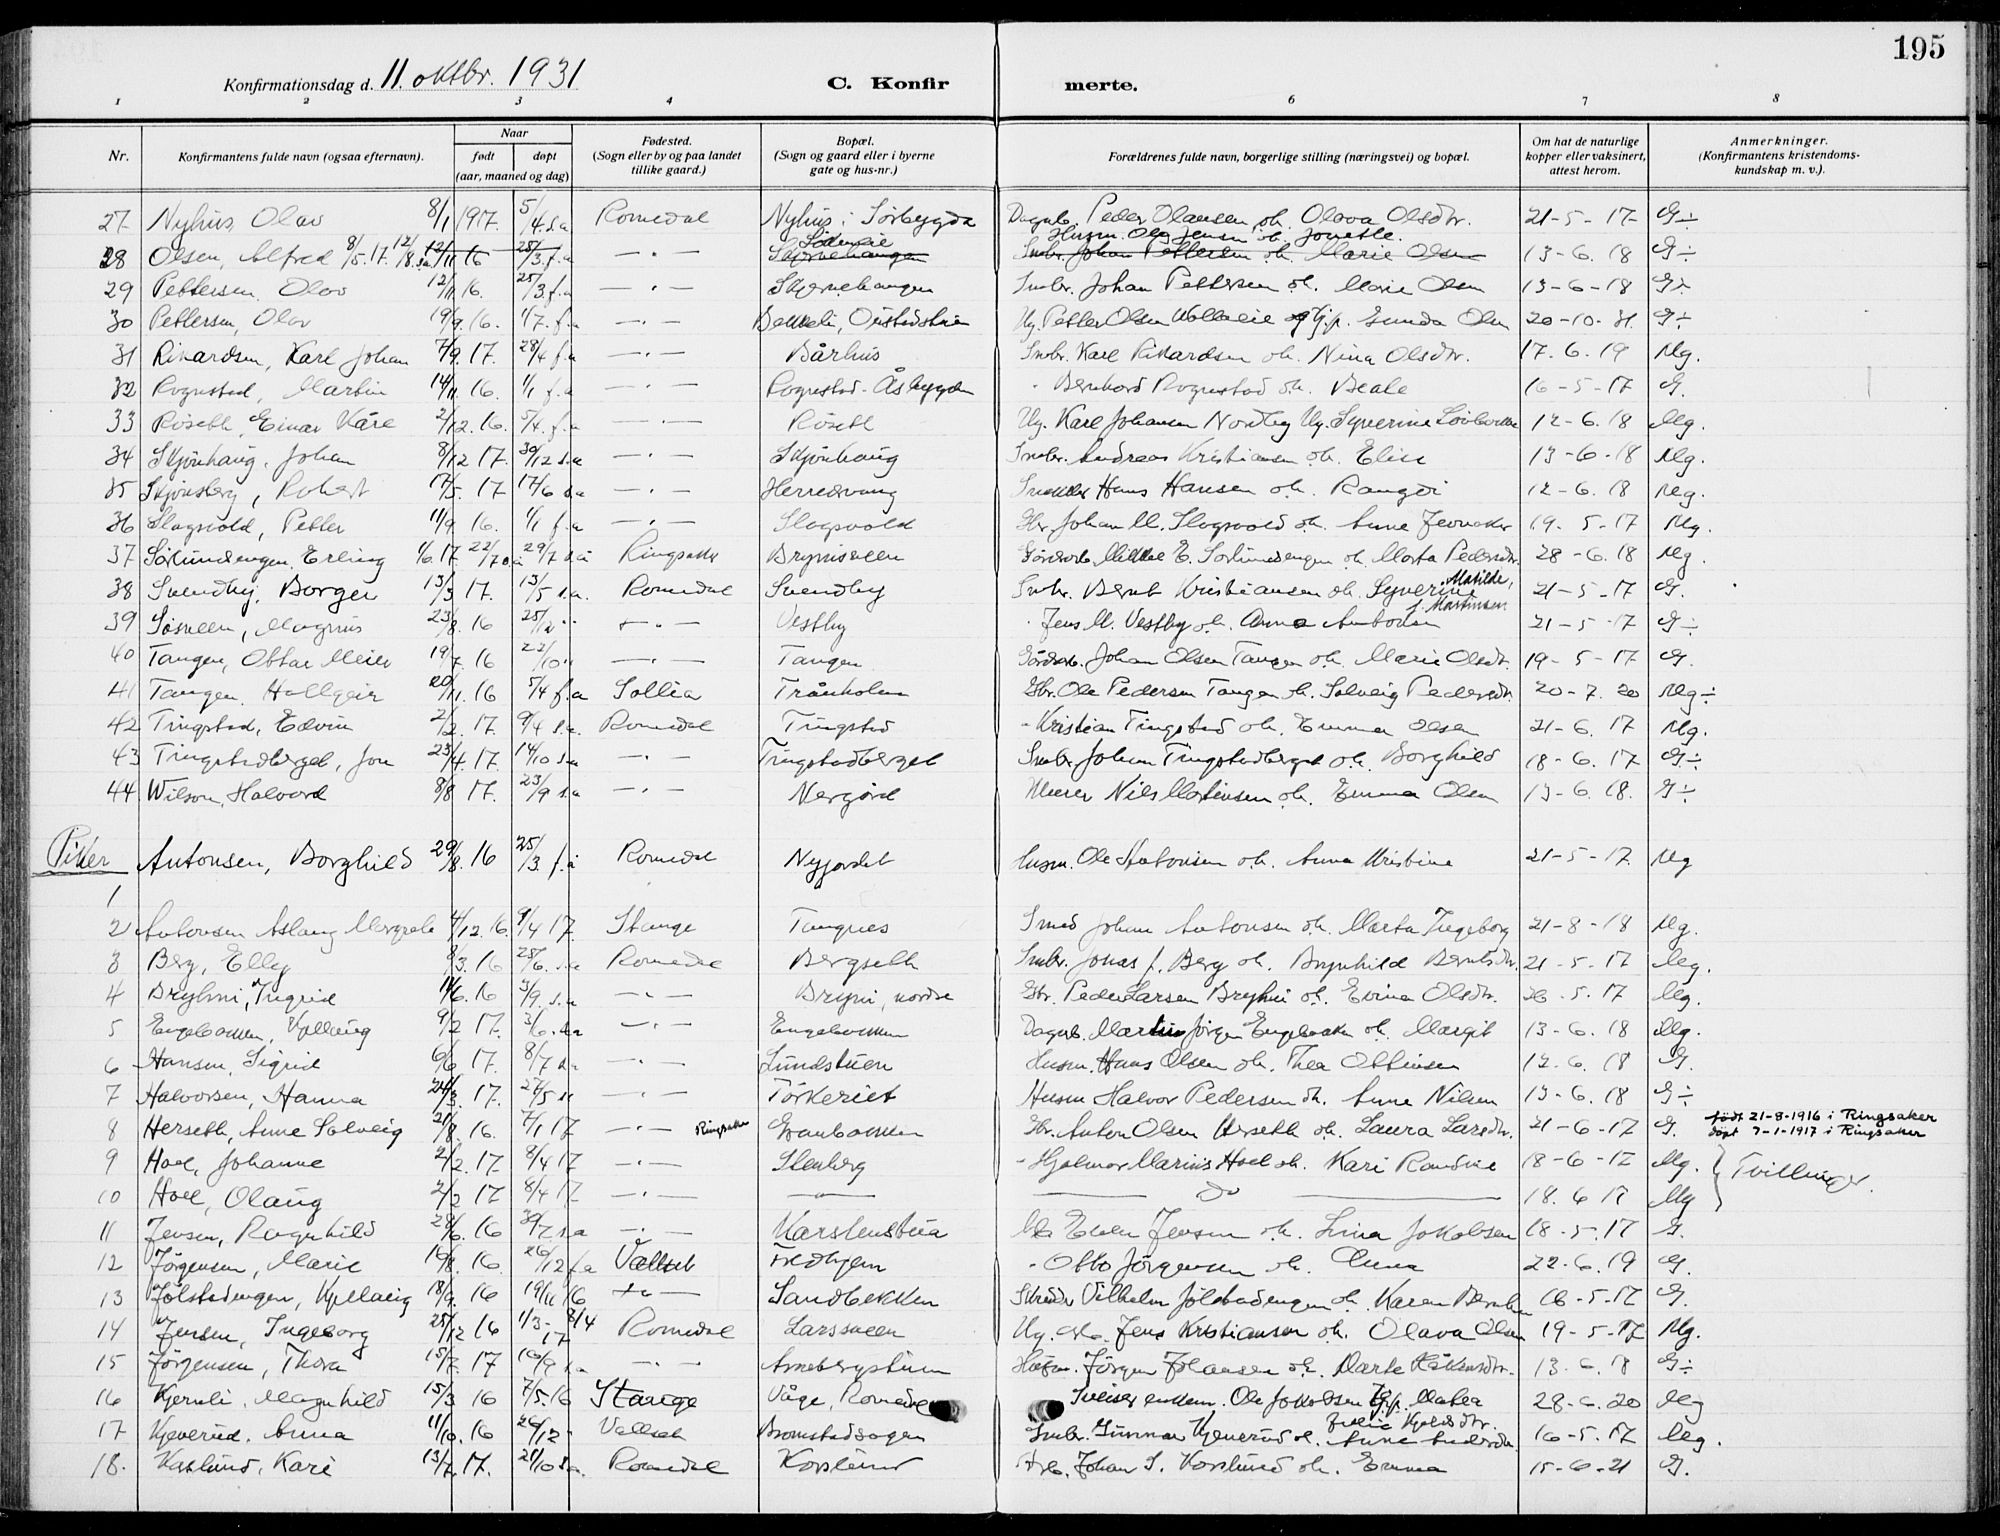 195
Konfirmationsdag d. 11. oktbr. 1931 C. Konfir merte.
1 2 3 4 5 6 7 8
Nr. Konfirmantens fulde navn (ogsaa efternavn). Naar født døpt (aar, maaned og dag) Fødested. (Sogn eller by og paa landet tillike gaard.) Bopæl. (Sogn og gaard eller i byerne gate og hus-nr.) Forældrenes fulde navn, borgerlige stilling (næringsvei) og bopæl. Om hat de naturlige kopper eller vaksinert, attest herom. Anmerkninger. (Konfirmantens kristendoms-kundskap m. v.).
27 Nyhus, Olav 8/1 1917. 5/4 s.a Romedal Nyhus i Sørbygda Dagarb. Peder Olausen oh. Olava Olsdtr. 21-5-17 G÷
Husm. Ole Jensen oh. Jonette.
28 Olsen, Alfred 8/5.17. 12/8.s.a 12/11 16 25/3.f.a —·— Skjernehaugen Smbr. Johan Pettersen oh. Marie Olsen 13-6.18 G÷
29 Pettersen, Olav 12/11 16. 25/3.f.a —·— Skjernehaugen Smbr. Johan Pettersen oh. Marie Olsen 13-6-18 G÷
30 Pettersen, Olav 19/9.16. 1/7.f.a —·— Ug. Petter Olsen og Pig. Gunda Olsen 20-10-31. G÷
31 Rikardsen, Karl Johan 7/9.17. 28/4 f.a —·— Bårhus Smbr. Karl Rikardsen oh. Nina Olsdtr. 17.6.19 Mg.
32 Rognstad, Martin 14/11 16. 1/1 f.a —·— Rognstad-Åsbygda - Bernhard Rognstad oh. Beate 16-5-17 G.
33 Röseth, Einar Kåre 2/12.16. 5/4.f.a —·— Röseth Ug. Karl Johansen Nordby Ug. Syverine 12-6.18 Mg.
34 Skjönhaug, Johan 8/12 17. 30/12 s.a —·— Skjönhaug Smbr. Andreas Kristiansen oh. Elise 13-6-18 Mg.
35 Skjönsberg, Robert 17/5.17 17/6 s.a —·— Herredsvang Snekker Hans Hansen oh. Rangdi 12-6.18 Mg.
36 Slagsvold, Petter 11/9 16. 1/1 f.a —·— Slagsvold Gbr. Johan M. Slagsvold oh. Anne 19.5-17 Mg.
37 Sörlundengen, Erling 1/6 17 22/7 s.a 29/7 s.a Ringsaker Bryniseen Gårdsarb. Mikkel E. Sörlundengen oh. Marta Pedersdtr. 28-6.18 Mg.
38 Svendby, Borger 13/3 17. 13/5 s.a. Romedal Svendby Smbr. Bernt Kristiansen oh. Syverine Matilde, 21-5-17 G.
39 Sösveen, Magnus 23/8.16 25/12 " —·— Vestby - Jens M. Vestby oh. Anna Antonsen f. Martinsen 21-5-17 G÷
40 Tangen, Ottar Meier 19/7.16 22/10" —·— Tangen Gårdsarb. Johan Olsen Tangen oh. Marie Olsdtr. 19-5-17 G.
41 Tangen, Hallgeir 20/11.16 5/4 f.a Sollia Trånholm Gbr. Ole Pedersen Tangen oh. Solveig Pedersdtr. 20-7.20 Mg÷
42 Tingstad, Edvin 2/2.17. 9/4 s.a. Romedal Tingstad - Kristian Tingstad oh. Emma Olsen 21-6.17 Mg.
43 Tingstadberget, Jon 23/4.17. 14/10 s.a —·— Tingstadberget Smbr. Johan Tingstadberget oh. Borghild 18-6.17 G÷
44 Wilson, Halvard 8/8 17. 23/9 s.a —·— Nergård Murer Nils Martinsen oh. Emma Olsen 13-6.18. G÷
Piker
1 Antonsen, Borghild 29/8.16 25/3.f.å Romedal Nyjordet Husm. Ole Antonsen oh. Anna Kristine 21-5-17. Mg
2 Antonsen Aslaug Margrete 4/12.16. 9/4 17. Stange Tangnes Smed Johan Antonsen oh. Marta Ingeborg 21-8-18 Mg.
3 Berg, Elly 8/3.16 25/6.s.a Romedal Bergseth Smbr. Jonas J. Berg oh. Brynhild Berntsdtr. 21-5-17 Mg.
4 Bryhni, Ingrid 14/6.16 3/9.s.a —·— Bryni, nordre Gbr. Peder Larsen Bryhni oh. Evina Olsdtr. 26.5-17 Mg.
5 Engebakken, Kjellaug 9/2 17. 3/6.s.a —·— Engebakken Dagarb. Martin Jörgen Engebakken oh. Margit 13-6.18 Mg.
6 Hansen, Sigrid 6/6 17. 8/7 s.a —·— Lundstuen Husm. Hans Olsen oh. Thea Ottinsen 12.6.18 G.
7 Halvorsen, Hanna 24/3.17. 27/5 s.a —·— Törkeriet Husm Halvor Pedersen oh. Anne Nilsen 13-6.18 G÷
8 Herseth, Anne Solveig 21/8.16. 7/1 17 —·— Ringsaker Granbakken Gbr. Anton Olsen Herseth oh. Laura Larsdtr. 21-6-17 G. født 21-8-1916 i Ringsaker døpt 7-1-1917 i Ringsaker
9 Hoel, Johanne 2/2.17. 8/4 17 —·— Stenberg - Hjalmar Marius Hoel oh. Kari Randine 18-6-17 Mg. } Tvillinger.
10 Hoel, Olaug 2/2 17 8/4 17 —·— —"— —— do —— 18.6 17 Mg
11 Jensen, Ragnhild 28/6.16 30/7 s.a —·— Karstenstua Jensen oh. Lina Jakobsen 18-5.17 G.
12 Jörgensen, Marie 16/8.16. 26/12 f.a Vallset Fredhjem - Otto Jörgensen oh. Anna 22-6.19 G.
13 Jölstadengen, Kjellaug 18/9.16 19/11 16 —·— Sandbekken Skrædder Vilhelm Jölstadengen oh. Karen 16-5-17 G.
14 Jensen, Ingeborg 25/12 16 1/3- 8/4 17 Romedal Larssveen Ug. arb. Jens Kristiansen oh. Olava Olsen 19-5.-17 Mg.
15 Jörgensen, Thora 15/7.17 16/9 s.a —·— Arnebergstuen Husm. Jörgen Johansen oh. Marte Håkensdtr. 13.6.18 G÷
16 Kjernli, Magnhild 15/3 16 7/5.16 Stange Våge, Romedal Sveiser enkem. Ole Jakobsen Pig. Mathea 28-6.20 Mg
17 Kjeverud, Anna 11/10.16 26/12- Vallset Bromstadsagen Smbr. Gunnar Kjeverud oh. Anne Andersdtr. 16-5.17 Mg.
18. Korslund, Kari 13/7.17. 28/10 s.a. Romedal Korslund Arb. Johan S. Korslund oh. Emma 15-6-21 G.